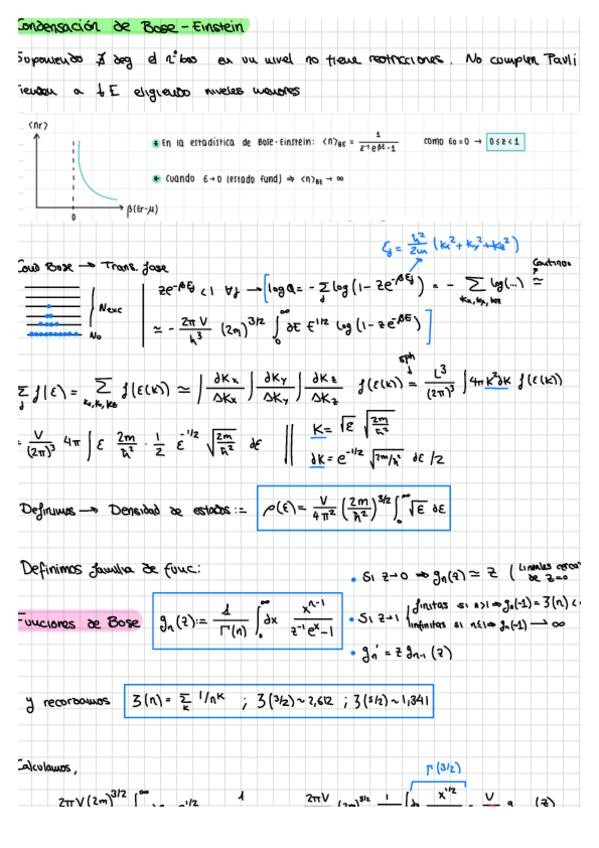 Condensación de Bose-Einstein
Suponiendo ∄ deg el nº bos en un nivel no tiene restricciones. No cumplen Pauli
tienden a ↓E eligiendo niveles menores
<nr>
0
β(εr-μ)
* En la estadística de Bose-Einstein: <n>BE = 1/(z⁻¹e^βE - 1) como ε₀=0 → 0≤z<1
* Cuando ε→0 (estado fund) ⇒ <n>BE → ∞
εj = ħ²/2m (kx²+ky²+kz²)
Cond Bose → Trans. fase
Nexc
No
ze^-βεj <1 ∀j → [log Q = - Σj log(1- ze^-βεj) = - Σkx,ky,kz log(...) ≃ Continuo
≃ - 2πV/h³ (2m)^3/2 ∫₀^∞ dE E^1/2 log(1-ze^-βE) ]
Σj f(ε) = Σkx,ky,kz f(ε(k)) ≃ ∫ dKx/ΔKx ∫ dKy/ΔKy ∫ dKz/ΔKz f(ε(k)) = sph L³/(2π)³ ∫ 4π k²dk f(ε(k))
= V/(2π)³ 4π ∫ ε 2m/ħ² · 1/2 ε^-1/2 √(2m/ħ²) dε || K = √ε √(2m/ħ²)
dK = e^-1/2 √(2m/ħ²) dε /2
Definimos → Densidad de estados := ρ(ε) = V/4π² (2m/ħ²)^3/2 ∫₀^∞ √ε dε
Definimos familia de func:
Funciones de Bose
gn(z) := 1/Γ(n) ∫₀^∞ dx x^n-1/(z⁻¹e^x - 1)
• Si z→0 ⇒ gn(z) ≃ z (Lineales cerca de z=0
• Si z→1 { finitas si n>1 ⇒ gn(-1) = ζ(n) <
infinitas si n≤1 ⇒ gn(-1) → ∞
• gn' = z gn-1(z)
y recordamos ζ(n) = Σk 1/n^k ; ζ(3/2) ~ 2,612 ; ζ(5/2) ~ 1,341
Calculamos,
Γ(3/2)